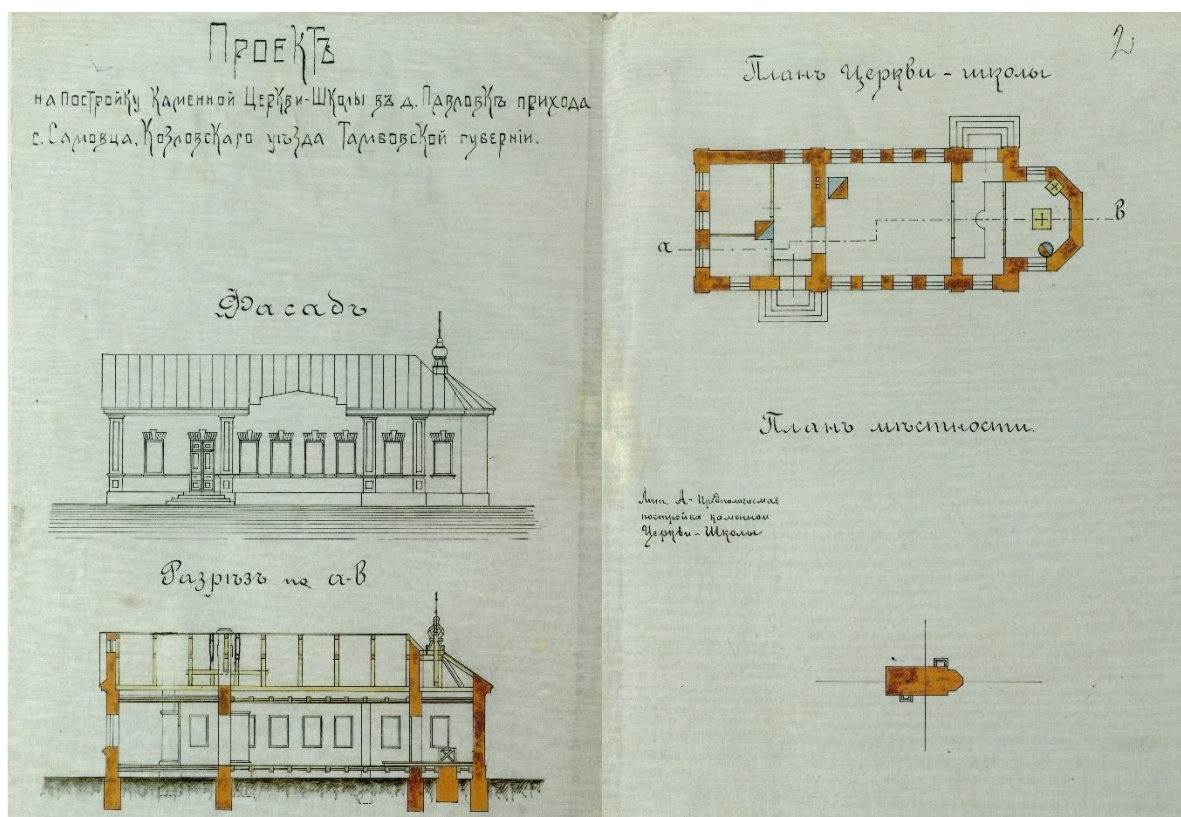 Проектъ
на постройку каменной Церкви-Школы въ д. Павловкѣ прихода
с. Самовца, Козловскаго уѣзда Тамбовской губерніи.
Фасадъ
Разрѣзъ по а-в
2
Планъ Церкви-школы
а
в
Планъ мѣстности.
Лит. А - Предпологаемая
постройка каменной
Церкви-Школы